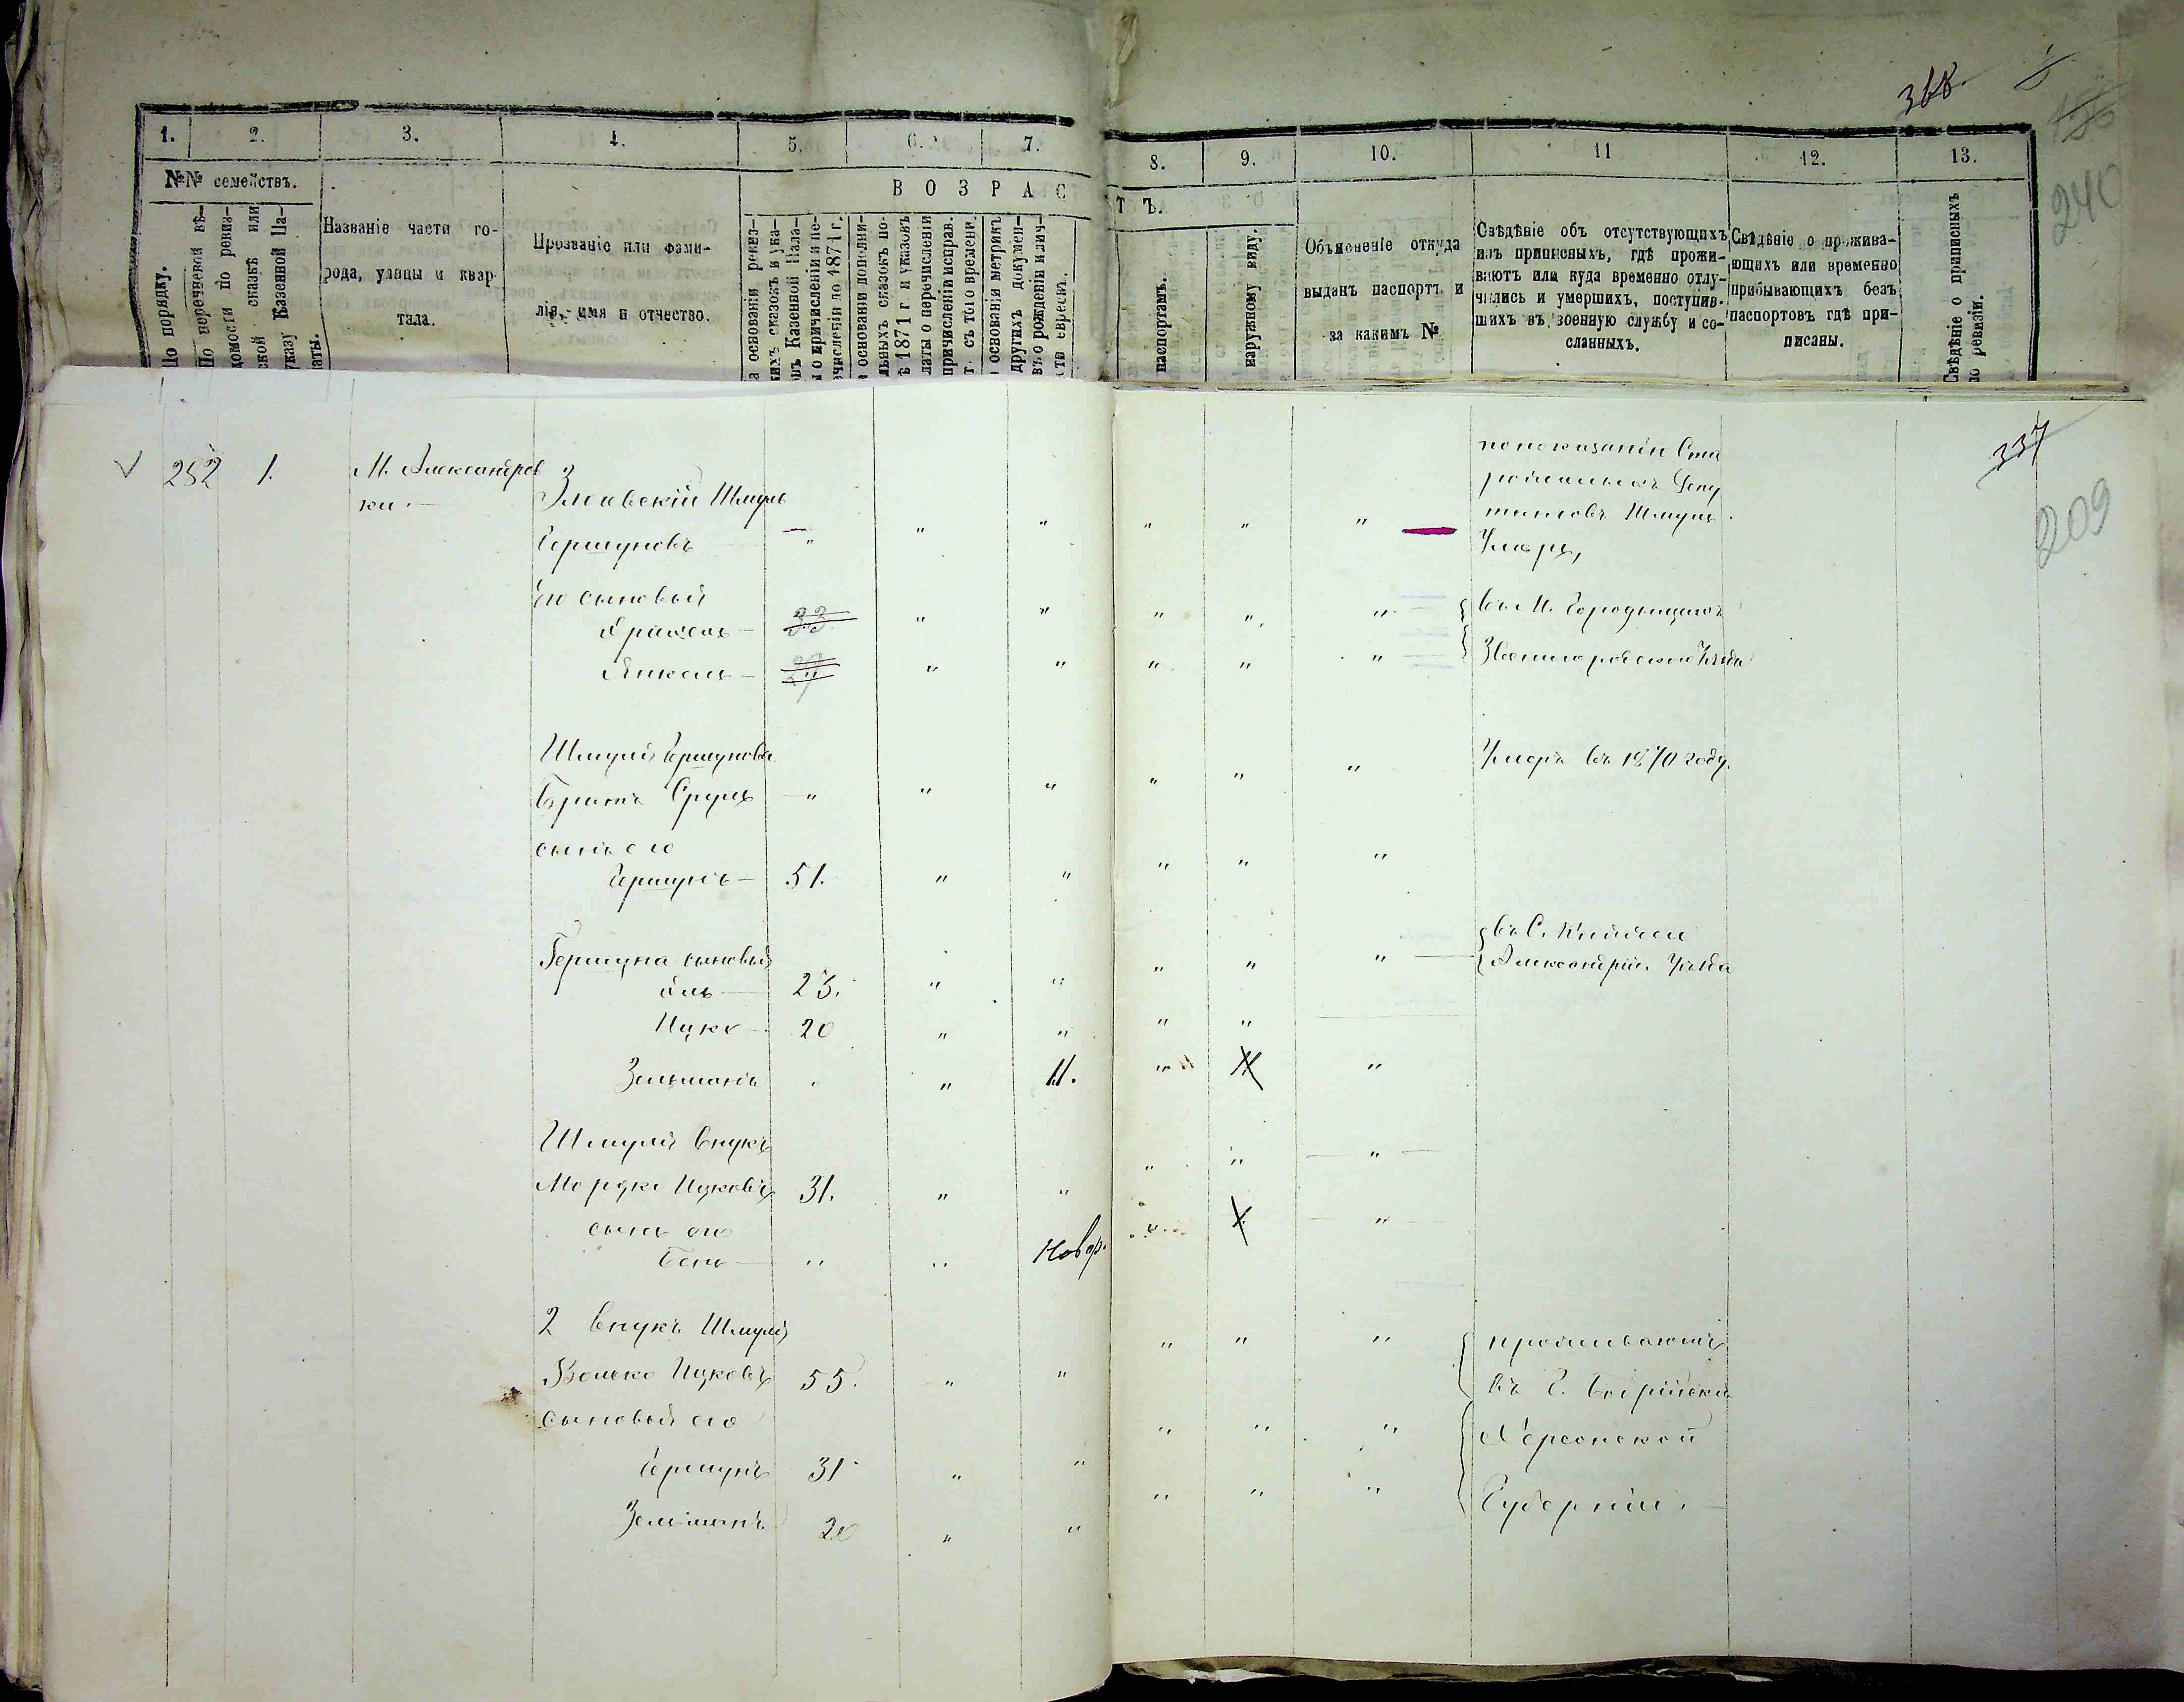 368.
240
1. 2. 3. 4. 5. 6. 7. 8. 9. 10. 11 12. 13.
№№ семействъ.
ВОЗРАСТЪ.
По порядку.
По перечневой вѣ-
домости по ревиз-
ской сказкѣ или
указу Казенной Па-
латы.
Названіе части го-
рода, улицы и квар-
тала.
Прозваніе или фами-
лія, имя и отчество.
а основаніи ревиз-
кихъ сказокъ и ука-
овъ Казенной Пала-
ы о причисленіи и пе-
ечисленіи до 1871 г.
и основаніи дополни-
льныхъ сказокъ по-
ѣ 1871 г. и указовъ
латы о перечисленіи
причисленіи исправ.
т. съ того времени.
основаніи метрикъ
другихъ докумен-
въ о рожденіи и лич-
сти евреевъ.
паспортамъ.
наружному виду.
Объясненіе откуда
выданъ паспортъ и
за какимъ №
Свѣдѣніе объ отсутствующихъ
изъ приписныхъ, гдѣ прожи-
ваютъ или куда временно отлу-
чились и умершихъ, поступив-
шихъ въ военную службу и со-
сланныхъ.
Свѣдѣніе о прожива-
ющихъ или временно
прибывающихъ безъ
паспортовъ гдѣ при-
писаны.
Свѣдѣніе о приписныхъ
по ревизіи.
337
209
252 1. М. Александров
ки.
Шмуль
Гершуновъ " " " " " "
Шмуль
Умеръ,
его сыновья
33 " " " " " въ М. Городищахъ
Янкель 29 " " " " " Звенигородскаго Уѣзда
Шмуля Гершунова
братъ Сруль " " " " " " Умеръ въ 1870 году.
сынъ его
Гершунъ 51. " " " " "
Гершуна сыновья въ С.
23. " " " " " Александрій. Уѣзда
Ицко 20 " " " "
Зельманъ " " 11. " 11 "
Шмуля внукъ
Мордко Ицковъ 31. " " " " "
сынъ его
Бень " " Новор. " "
2 внукъ Шмуля
Волько Ицковъ 55. " " " " " проживаютъ
сыновья его въ
Гершунъ 31 " " " " " Херсонской
Зельманъ 20 " " " " " Губерніи.